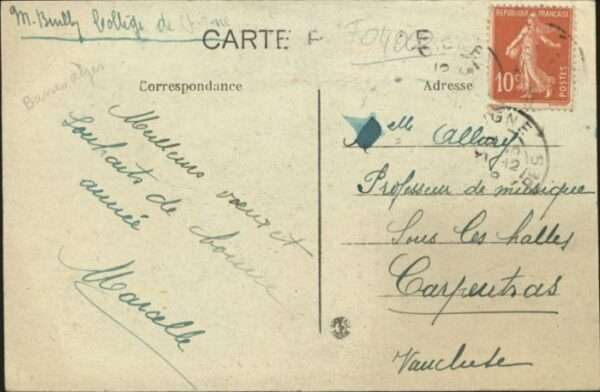 M. Bully Collège de Digne
CARTE P
Correspondance
Adresse
RÉPUBLIQUE FRANÇAISE
10c
POSTES
Basses Alpes
Meilleurs vœux et
Souhaits de bonne
année
Marcelle
Melle Allary
Professeur de musique
Sous les halles
Carpentras
Vaucluse